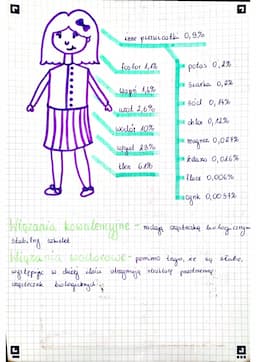 inne pierwiastki 0,9%
fosfor 1,1%
wapń 1,4%
azot 2,6%
wodór 10%
węgiel 23%
tlen 61%
potas 0,2%
siarka 0,2%
sód 0,14%
chlor 0,12%
magnez 0,027%
żelazo 0,006%
cynk 0,0037%
Wiązania kowalencyjne - nadają cząsteczką biologicznym
stabilny szkielet
Wiązania wodorowe - pomimo tego, że są słabe,
występując w dużej ilości utrzymują strukturę przestrzenną
cząsteczek biologicznych